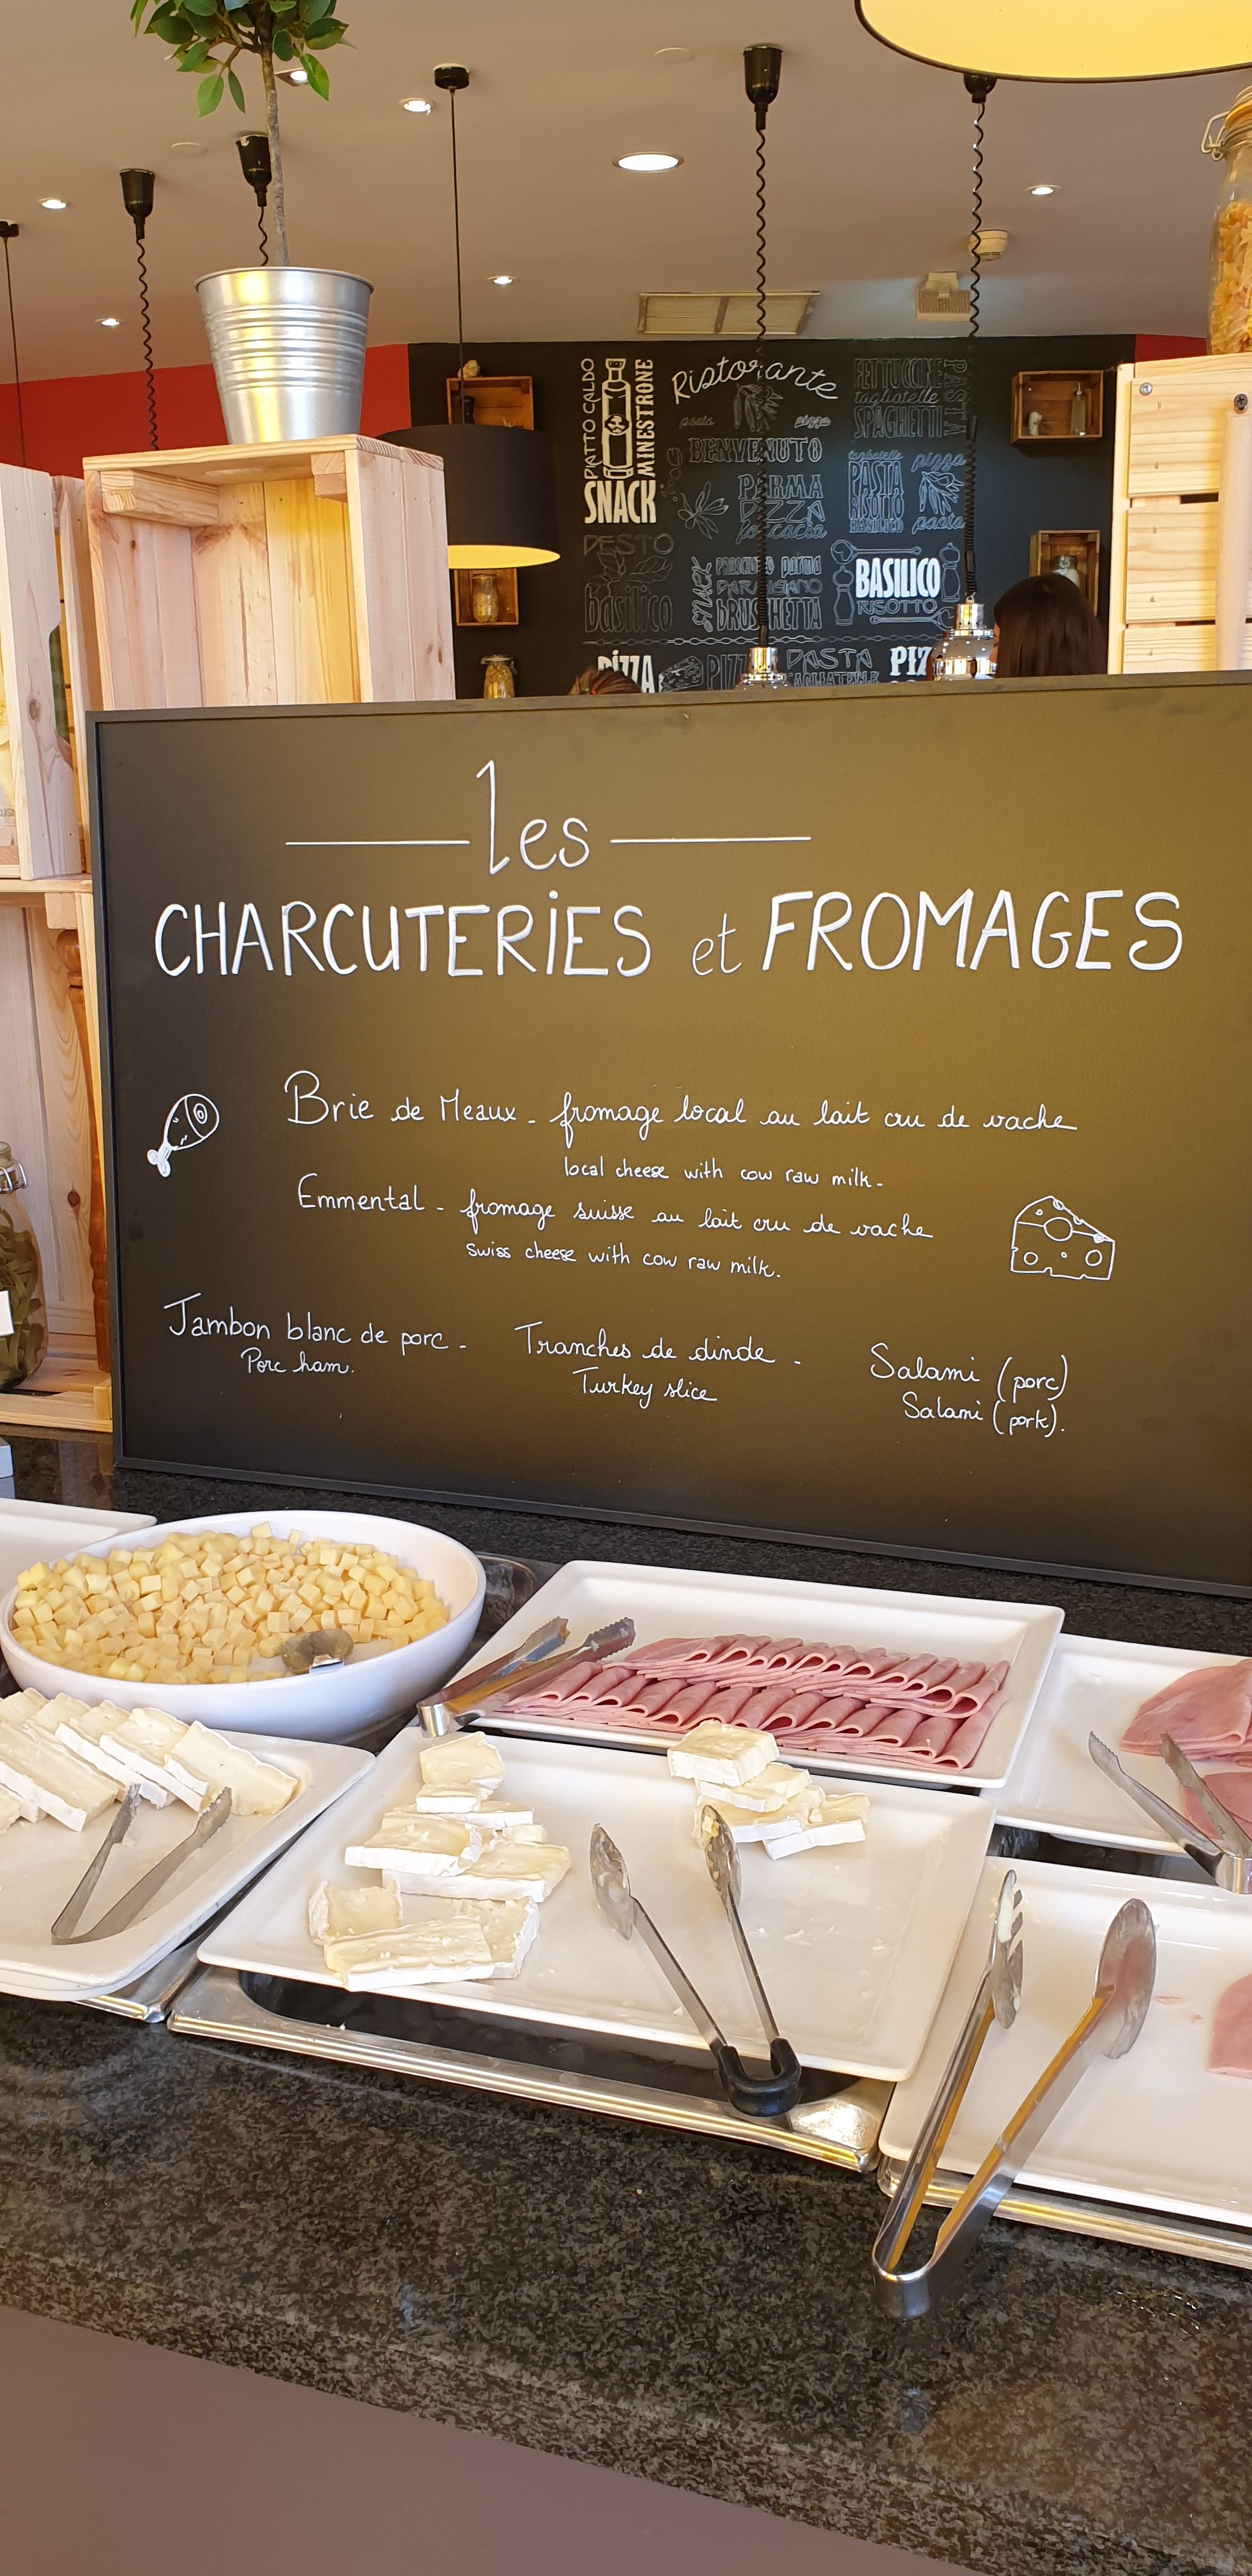 PIATTO CALDO
MINESTRONE
SNACK
Ristorante
pasta pizza
BENVENUTO
PARMA
PIZZA
focaccia
FETTUCCINE
tagliatelle
SPAGHETTI
PASTA
tagliatelle
PASTA
RISOTTO
BASILICO
pizza
pasta
PESTO
basilico
SNACK
PROSCIUTTO parma
PARMIGIANO
bRUSCHETTA
BASILICO
RISOTTO
PIZZA
PIZZ
PASTA
TAGLIATELLE
PIZ
les
CHARCUTERIES et FROMAGES
Brie de Meaux - fromage local au lait cru de vache
local cheese with cow raw milk -
Emmental - fromage suisse au lait cru de vache
swiss cheese with cow raw milk.
Jambon blanc de porc - Tranches de dinde - Salami (porc)
Porc ham. Turkey slice Salami (pork).